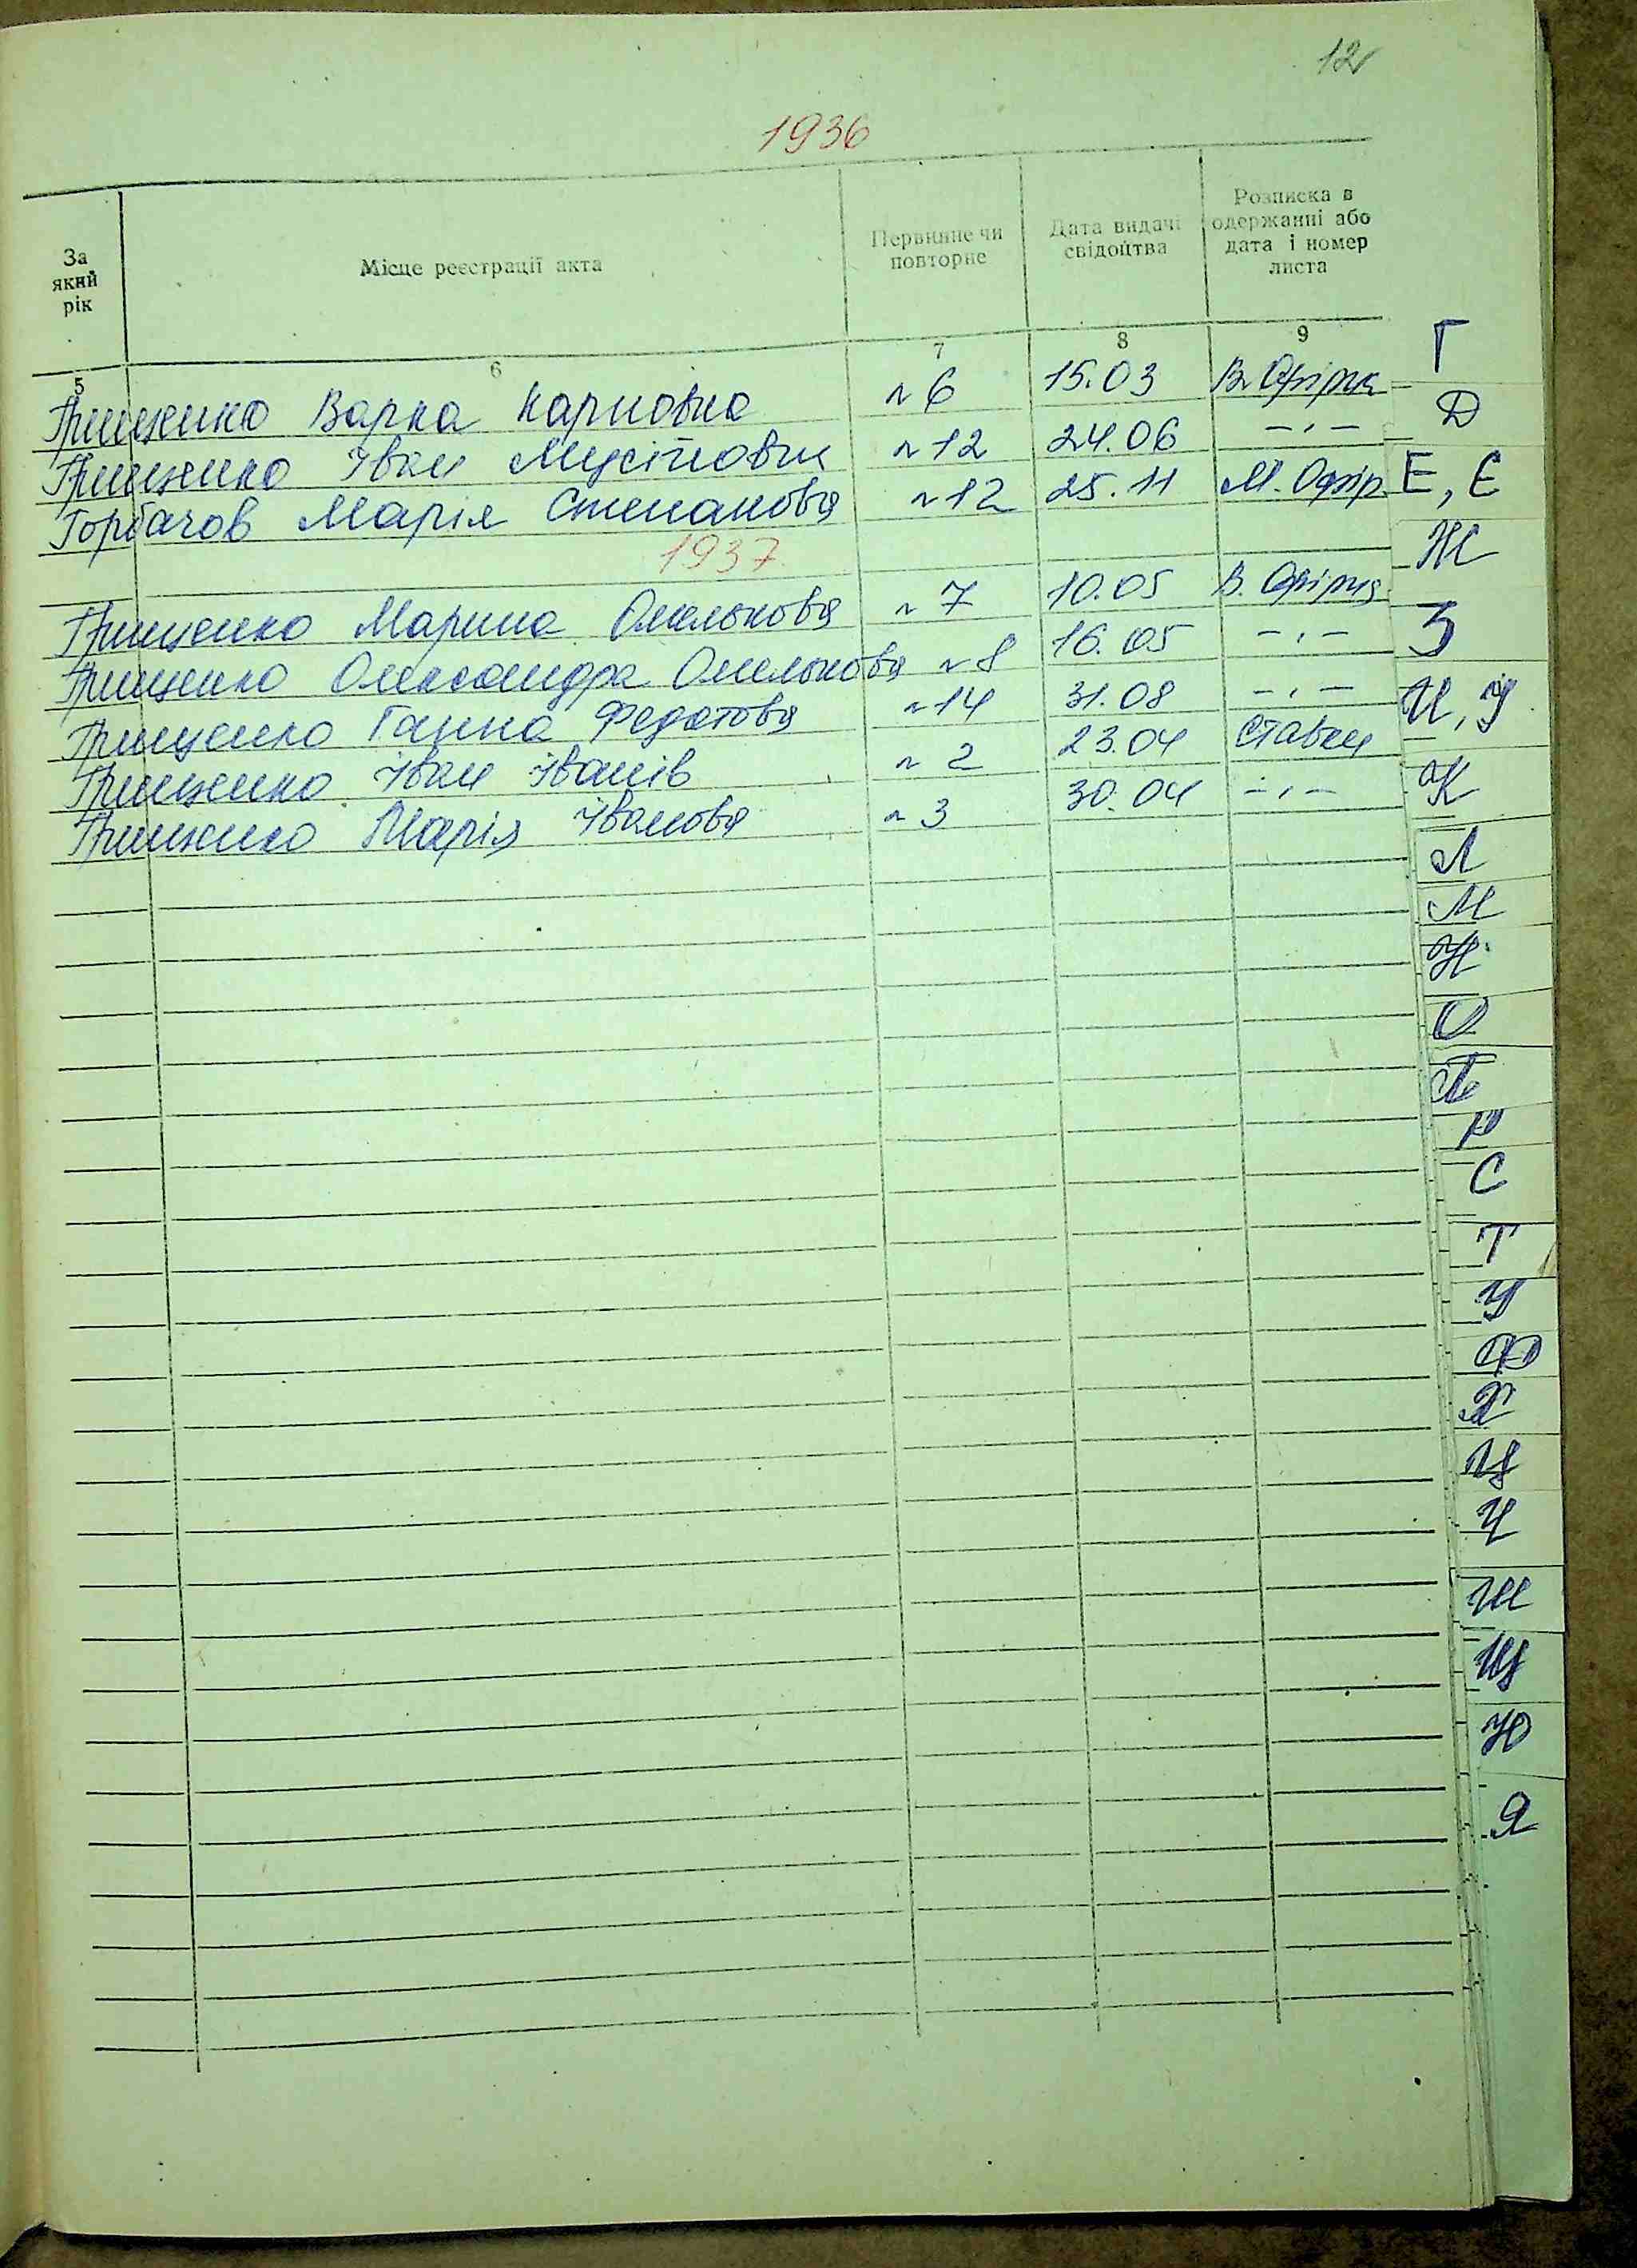 12
1936
За який рік
Місце реєстрації акта
Первинне чи повторне
Дата видачі свідоцтва
Розписка в одержанні або дата і номер листа
5 6 7 8 9
Грищенко Варка Карповна n 6 15.03 В. Офірна
Грищенко Іван Мусійович n 12 24.06 -,-
Горбачов Марія Степанова n 12 25.11 М. Офір.
1937
Грищенко Марина Омелькова n 7 10.05 В. Офірна
Грищенко Олександра Омелькова n 8 16.05 -,-
Грищенко Ганна Федотова n 14 31.08 -,-
Грищенко Іван Іванів n 2 23.04 Ставки
Грищенко Марія Іванова n 3 30.04 -,-
Г
Д
Е, Є
Ж
З
И, У
К
Л
М
Н
О
П
Р
С
Т
У
Ф
Х
Ц
Ч
Ш
Щ
Ю
Я